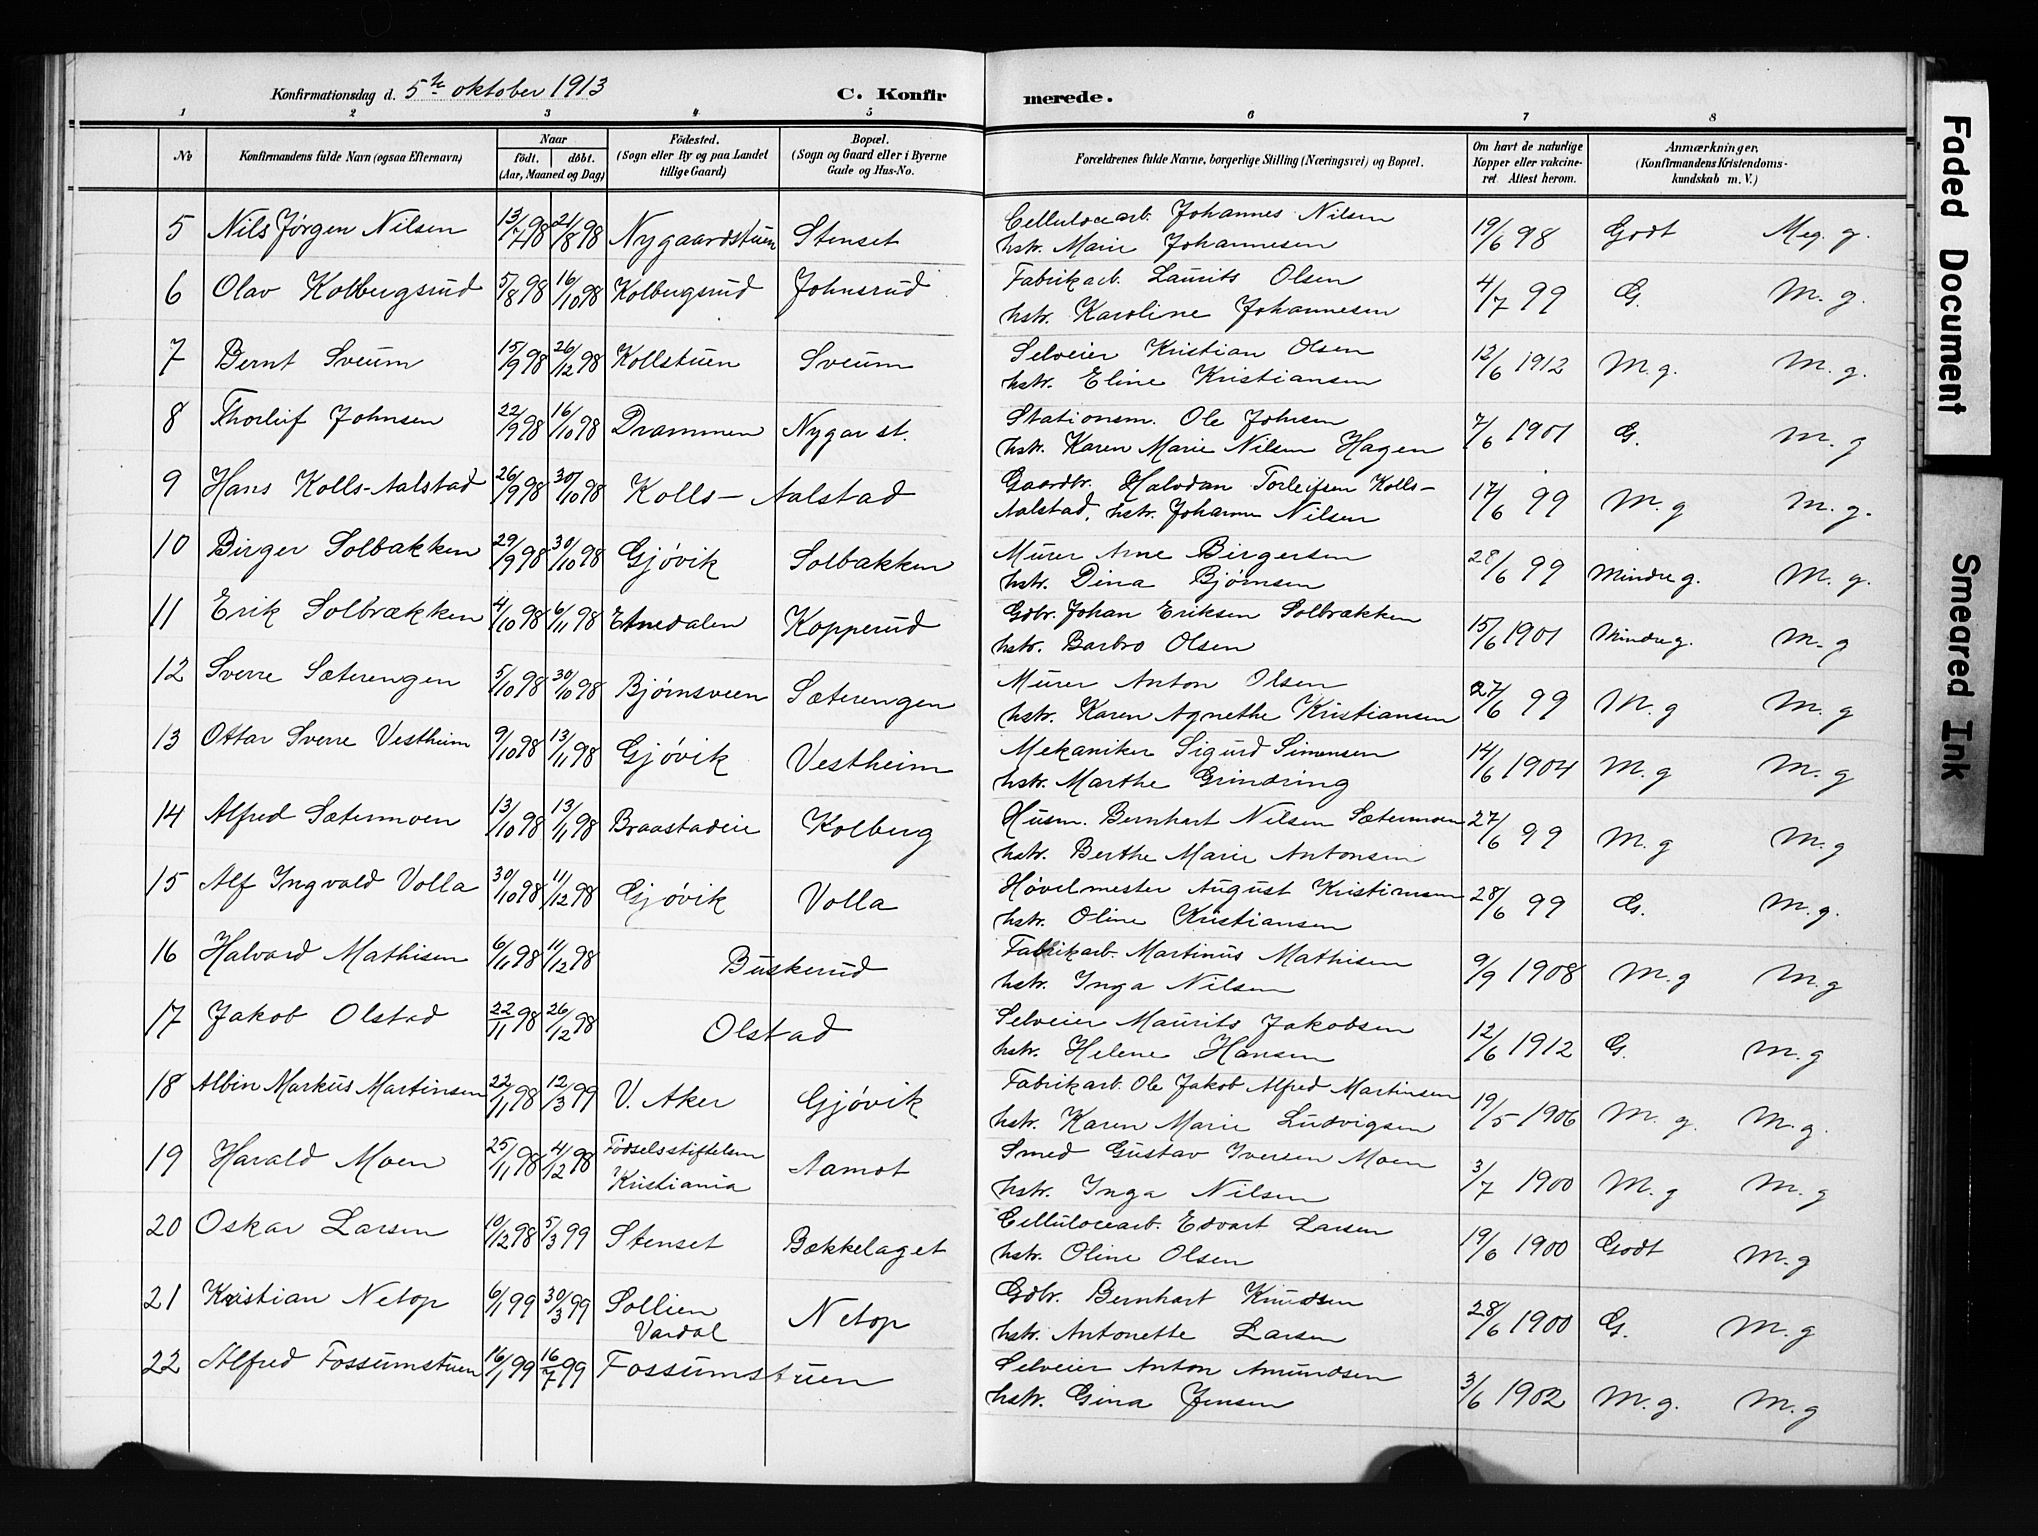 Konfirmationsdag d. 5te oktober 1913 C. Konfirmerede.
1 2 3 4 5 6 7 8
No Konfirmandens fulde Navn (ogsaa Efternavn) Naar født. døbt. (Aar, Maaned og Dag) Fødested. (Sogn eller By og paa Landet tillige Gaard) Bopæl. (Sogn og Gaard eller i Byerne Gade og Hus-No. Forældrenes fulde Navne, borgerlige Stilling (Næringsvei) og Bopæl. Om havt de naturlige Kopper eller vakcineret Attest herom. Anmærkninger. (Konfirmandens Kristendomskundskab m. V.)
5 Nils Jørgen Nilsen 13/7 98 21/8 98 Nygaardstuen Stenset Cellulocearb. Johannes Nilsen 19/6 98 Godt Meg. g.
hstr. Marie Johannesen
6 Olav Kolbergsrud 5/8 98 16/10 98 Kolbergsrud Johnsrud Fabrikarb. Laurits Olsen 4/7 99 G. M. g.
hstr. Karoline Johannesen
7 Bernt Sveum 15/9 98 26/12 98 Kollstuen Sveum Selveier Kristian Olsen 12/6 1912 M. g. M. g.
hstr. Eline Kristiansen
8 Thorleif Johnsen 22/9 98 16/10 98 Drammen Nygar st. Stationsm. Ole Johnsen 7/6 1901 G. M. g
hstr. Karen Marie Nilsen Hagen
9 Hans Kolls-Aalstad 26/9 98 30/10 98 Kolls-Aalstad Gaardbr. Halvdan Torleifsen Kolls- 17/6 99 M. g M. g.
Aalstad, hstr. Johanne Nilsen
10 Birger Solbakken 29/9 98 30/10 98 Gjøvik Solbakken Murer Arne Birgersen 28/6 99 Mindre g. M. g.
hstr. Dina Bjørnsen
11 Erik Solbrækken 4/10 98 6/11 98 Etnedalen Kopperud Gdbr. Johan Eriksen Solbrækken 15/6 1901 Mindre g. M. g
hstr. Barbro Olsen
12 Sverre Sæterengen 5/10 98 30/10 98 Bjørnsveen Sæterengen Murer Anton Olsen 27/6 99 M. g M. g
hstr. Karen Agnethe Kristiansen
13 Ottar Sverre Vestheim 9/10 98 13/11 98 Gjøvik Vestheim Mekaniker Sigurd Simensen 14/6 1904 M. g M. g
hstr. Marthe Grindring
14 Alfred Sætermoen 13/10 98 13/11 98 Braastadeie Kolberg Husm. Bernhart Nilsen Sætermoen 27/6 99 M. g M. g
hstr. Berthe Marie Antonsen
15 Alf Ingvald Volla 30/10 98 11/12 98 Gjøvik Volla Høvelmester August Kristiansen 28/6 99 G. M. g.
hstr. Oline Kristiansen
16 Halvard Mathisen 6/11 98 11/12 98 Buskerud Fabrikarb. Martinus Mathisen 9/9 1908 M. g M. g
hstr. Inga Nilsen
17 Jakob Olstad 22/11 98 26/12 98 Olstad Selveier Maurits Jakobsen 12/6 1912 G. M. g
hstr. Helene Hansen
18 Albin Markus Martinsen 22/11 98 12/3 99 V. Aker Gjøvik Fabrikarb. Ole Jakob Alfred Martinsen 19/5 1906 M. g. M. g.
hstr. Karen Marie Ludvigsen
19 Harald Moen 25/11 98 4/12 98 Fødselsstiftelsen Kristiania Aamot Smed Gustav Iversen Moen 3/7 1900 M. g M. g
hstr. Inga Nilsen
20 Oskar Larsen 10/12 98 5/3 99 Stenset Bækkelaget Cellulocearb. Edvart Larsen 19/6 1900 Godt M. g
hstr. Oline Olsen
21 Kristian Netop 6/1 99 30/3 99 Sollien Vardal Netop Gdbr. Bernhart Knudsen 28/6 1900 G. M. g
hstr. Antonette Larsen
22 Alfred Fossumstuen 16/1 99 16/7 99 Fossumstuen Selveier Anton Amundsen 3/6 1902 M. g. M. g
hstr. Gina Jensen
Faded Document
Smeared Ink